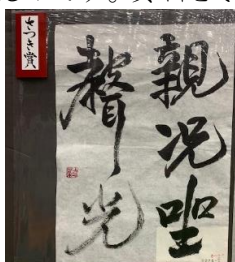 さつき賞
親況聖
聲光